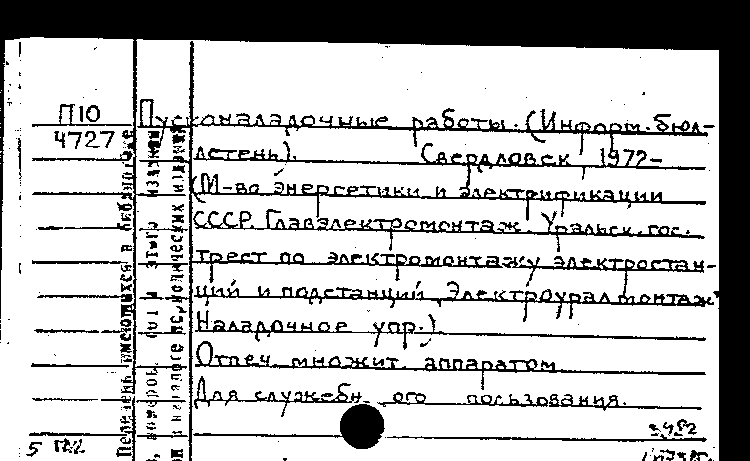 П10
4727
Пусконаладочные работы. (Информ. бюл-
летень). Свердловск 1972-
(М-во энергетики и электрификации
СССР. Главэлектромонтаж. Уральск. гос.
трест по электромонтажу электростан-
ций и подстанций „Электроуралмонтаж"
Наладочное упр.)
Отпеч. множит. аппаратом
Для служебн ого пользования.
Перечень имеющихся в библиотеке
номеров этого издания
в каталоге периодических изданий